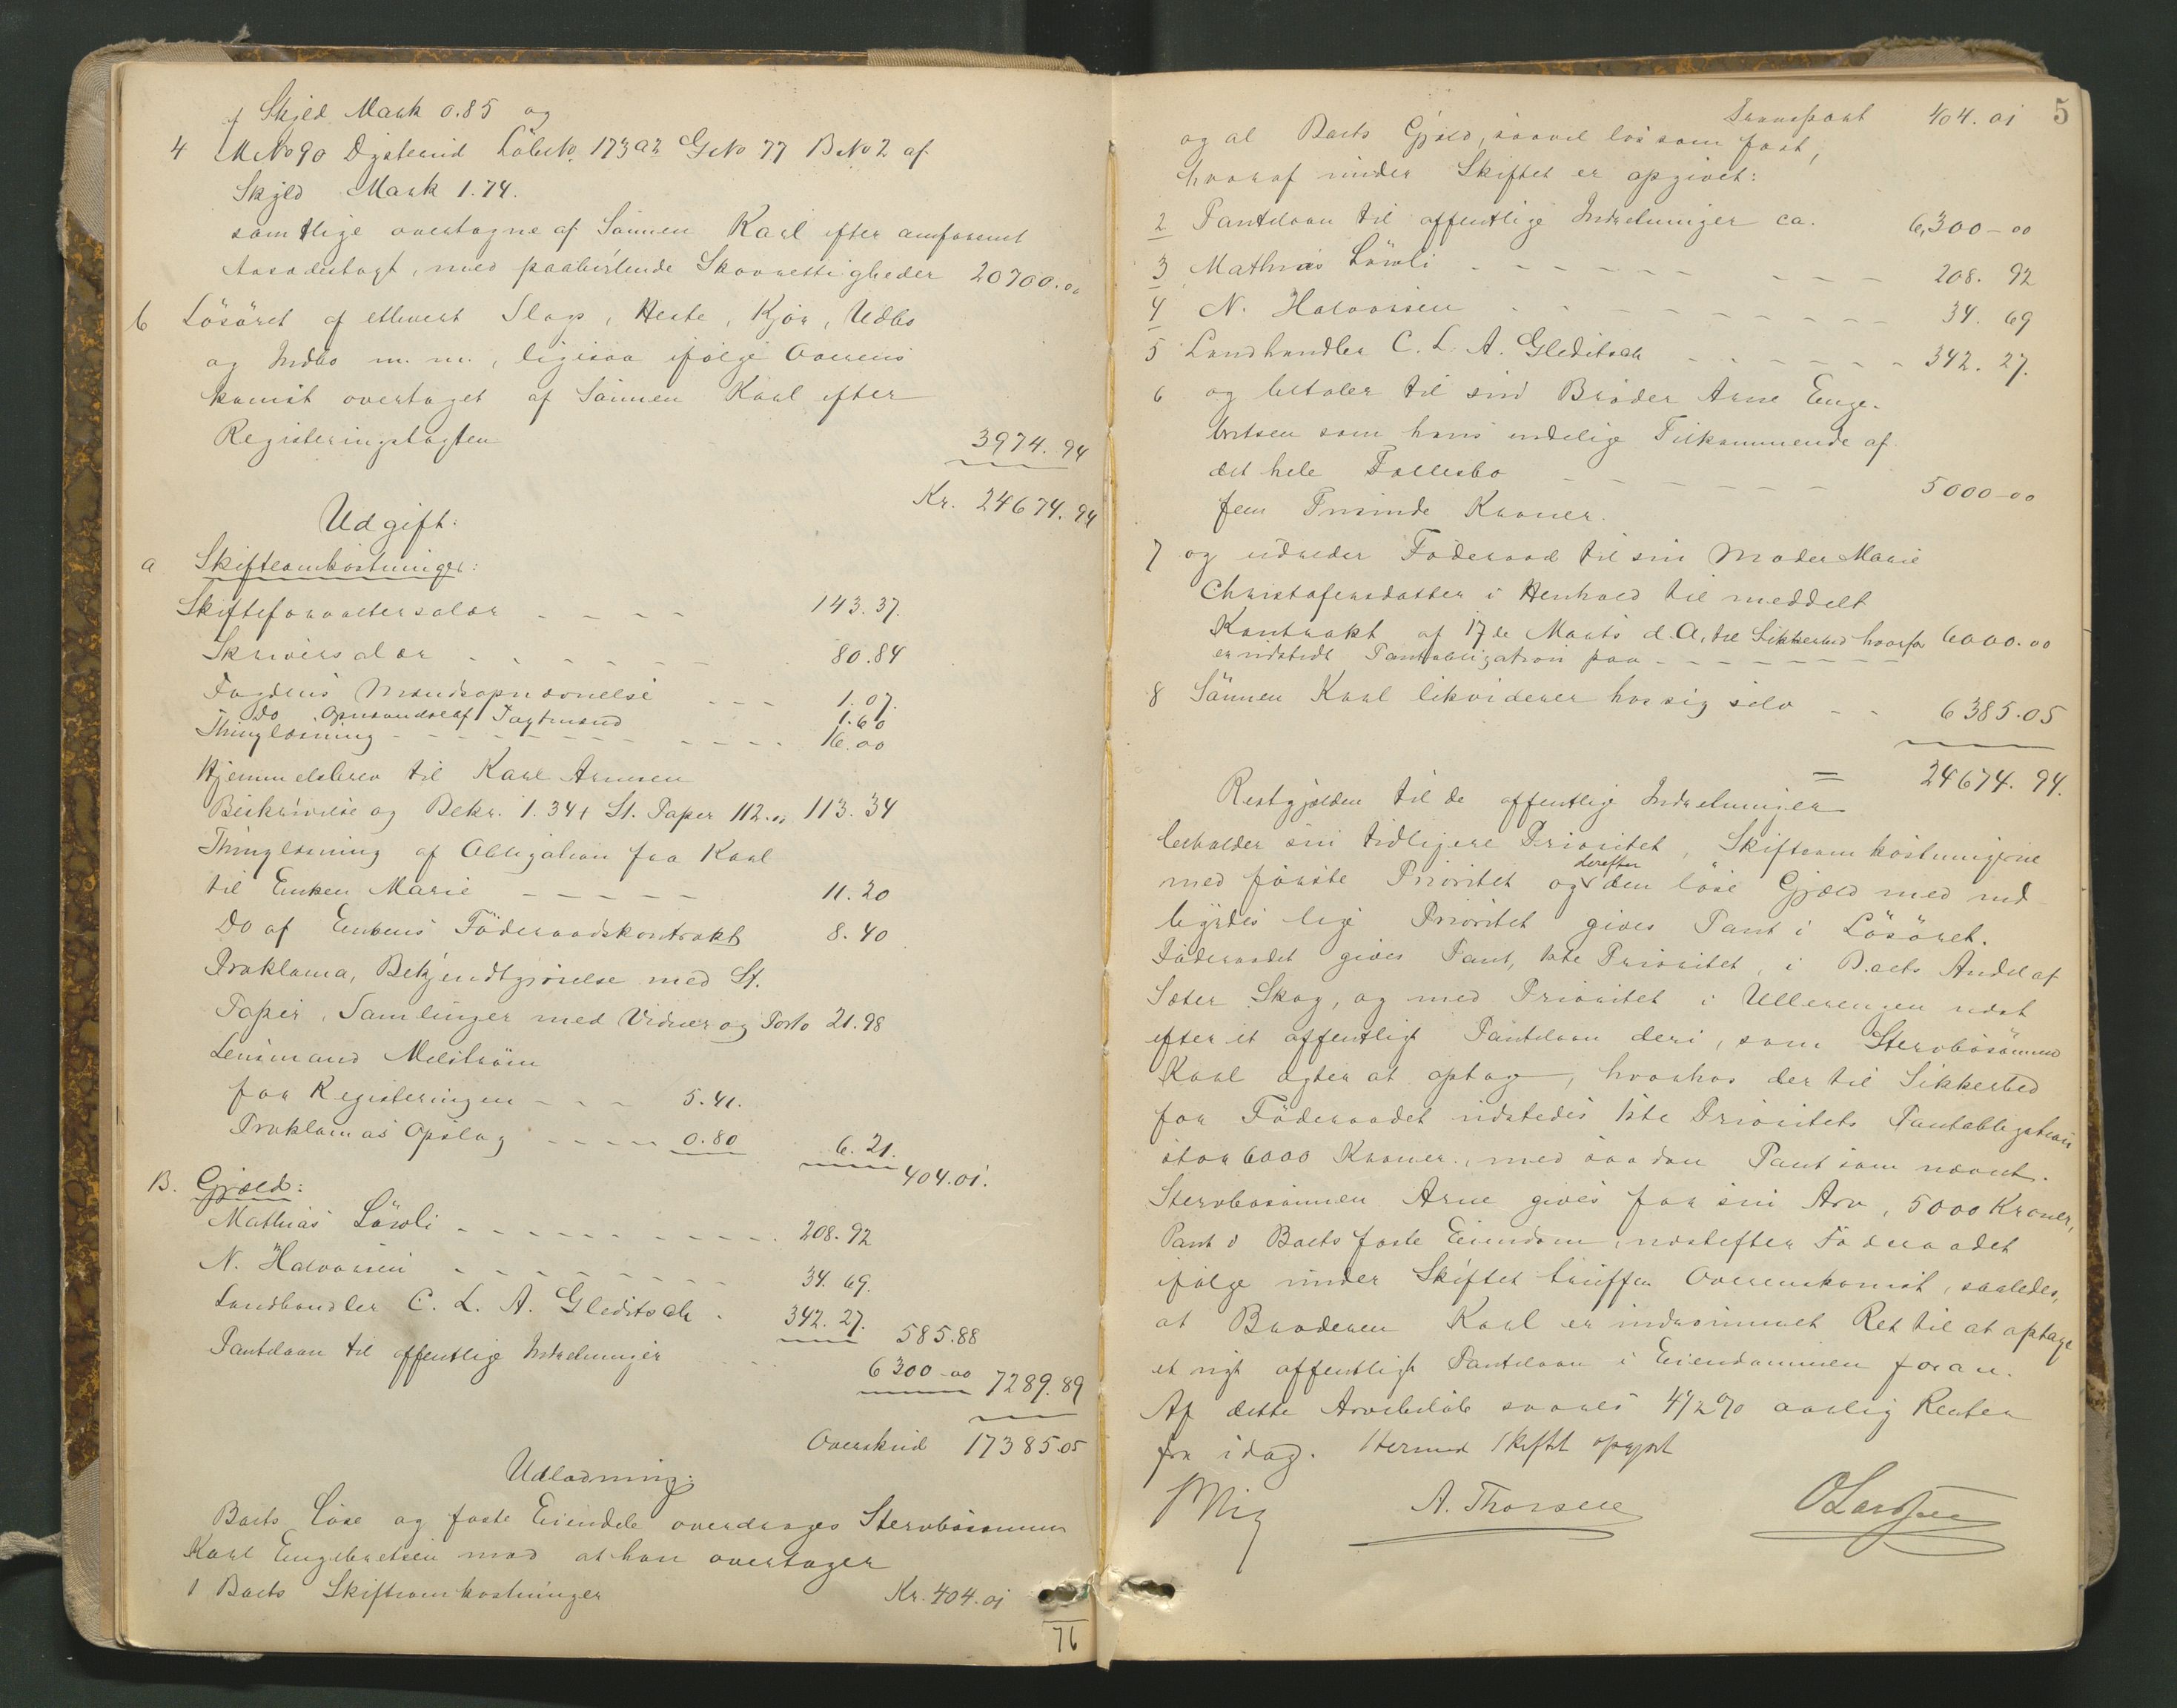 af Skyld Mark 0.85 og
4 M No 90 Dysterud Löbeno. 173 a2 G No 77 B No 2 af
Skyld Mark 1.74.
samtlige overtagne af Sönnen Karl efter anförsent
Aasædestagt, med paahvilende Skovrettigheder 20700.00
b Lösöret af ethvert Slags, Heste, Kjör, Udbo
og Indbo m.m., ligesaa ifölge Overens
komst overtaget af Sönnen Karl efter
Registeringstagten 3974.94
Kr. 24674.94
Udgift:
a Skifteomkostninger:
Skifteforvaltersalær - - - - 143.37.
Skriversalær - - - - - - 80.84
Fogdens Mandsopnævnelse - - - 1.07.
Do Opnævnelse af Taxtmænd 1.60
Thinglæsning - - - - - - - - - 16.00
Hjemmelsbrev til Karl Arnesen
Beskrivelse og Bekr. 1.34 + St. Papir 112.00 113.34
Thinglæsning af Obligation fra Karl
til Enken Marie - - - - - 11.20
Do af Enkens Föderaadskontrakt 8.40
Proklama, Bekjendtgjörelse med St.
Papir, Samlinger med Vidner og Porto 21.98
Lensmand Melström
for Registeringen - - - 5.41.
Proklamas Opslag - - - - 0.80 6.21.
404.01.
B. Gjæld:
Mathias Löwli - - - - - - - - - 208.92
N. Halvorsen - - - - - - - - 34.69.
Landhandler C. L. A. Gleditsch - 342.27. 585.88
Pantelaan til offentlige Indretninger - - - 6300-00 7289.89
Overskud 17385.05
Udlodning:
Boets löse og faste Eiendele overdrages Stervbosönnen
Karl Engebretsen mod at han overtager
1 Boets Skifteomkostninger Kr. 404.01
76
5
Transport 404.01
og al Boets Gjæld, saavel lös som fast,
hvoraf under Skiftet er opgivet:
2 Pantelaan til offentlige Indretninger ca. 6,300-00
3 Mathias Löwli - - - - - - - - - 208.92
4 N. Halvorsen - - - - - - - - - 34.69
5 Landhandler C. L. A. Gleditsch - - - - - - 342.27.
6 og betaler til sin Broder Arne Enge-
bretsen som hans endelige Tilkommende af
det hele Fællesbo - - - - - - - 5000-00
fem Tusinde Kroner.
7 og udreder Föderaad til sin Moder Marie
Christofersdatter i Henhold til meddelt
Kontrakt af 17de Marts d. A., til Sikkerhed hvorfor 6000.00
er udstedt Pantobligation paa - - - - - - - -
8 Sönnen Karl likviderer hos sig selv - - 6385.05
= 24674.94.
Restgjælden til de offentlige Indretninger
beholder sin tidligere Prioritet, Skifteomkostningerne
med förste Prioritet og derefter den löse Gjæld med ind-
byrdes lige Prioritet gives Pant i Lösöret.
Föderaadet gives Pant, 1ste Prioritet, i Boets Andel af
Sæter Skog, og med Prioritet i Ullerengen næst
efter et offentligt Pantelaan deri, som Stervbosönnen
Karl agter at optage, hvorhos der til Sikkerhed
for Föderaadet udstedes 1ste Prioritets Pantobligation
stor 6000 Kroner, med saadan Pant som nævnt.
Stervbosönnen Arne gives for sin Arv, 5000 Kroner,
Pant i Boets faste Eiendom, næstefter Föderaadet
ifölge under Skiftet truffen Overenskomst, saaledes,
at Broderen Karl er indrömmet Ret til at optage
et nyt offentligt Pantelaan i Eiendommen foran.
Af dette Arvebelöb svares 4 1/2 % aarlig Renter
fra idag. Hermed Skiftet opgjort
A. Thorsen
O Larssen